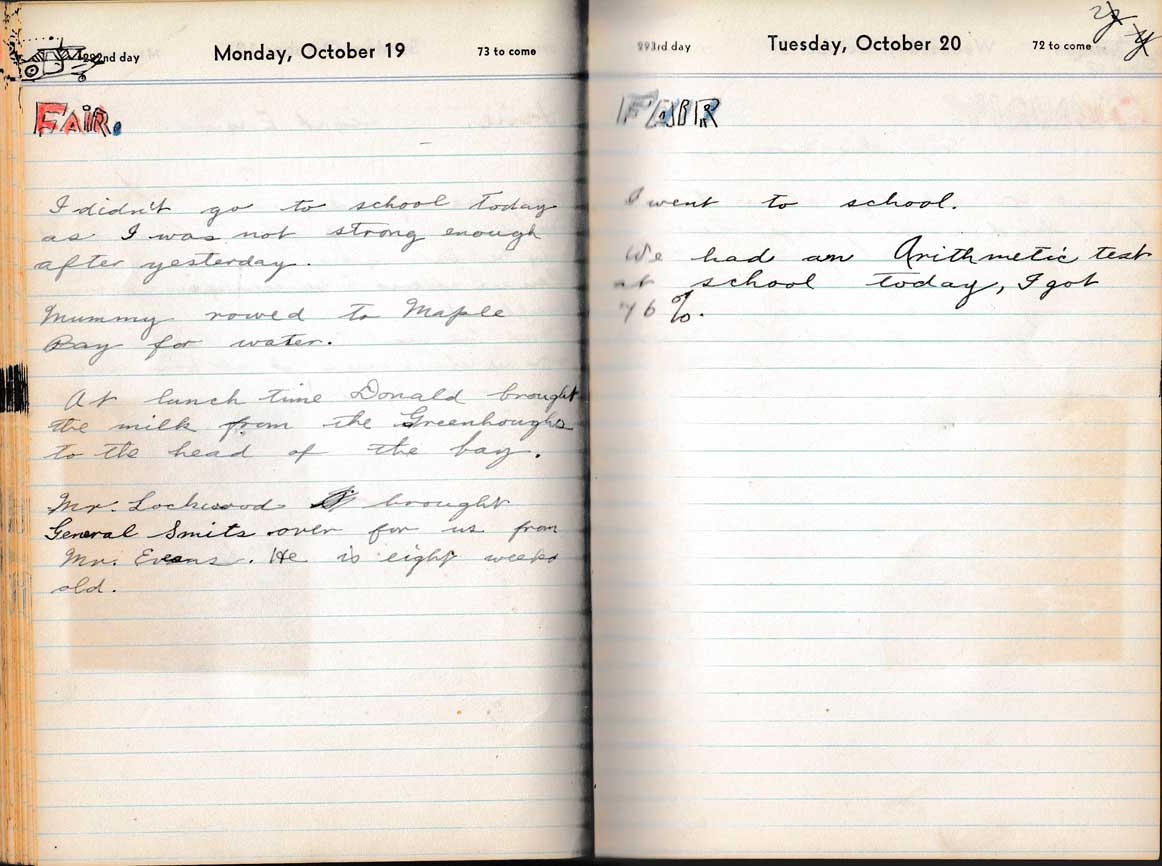 292nd day
Monday, October 19
73 to come
FAIR.
I didn't go to school today
as I was not strong enough
after yesterday.
Mummy rowed to Maple
Bay for water.
At lunch time Donald brought
the milk from the Greenhoughs
to the head of the bay.
Mr. Lockwood brought
General Smits over for us from
Mr. Evans. He is eight weeks
old.
293rd day
Tuesday, October 20
72 to come
FAIR
I went to school.
We had an Arithmetic test
at school today, I got
76%.